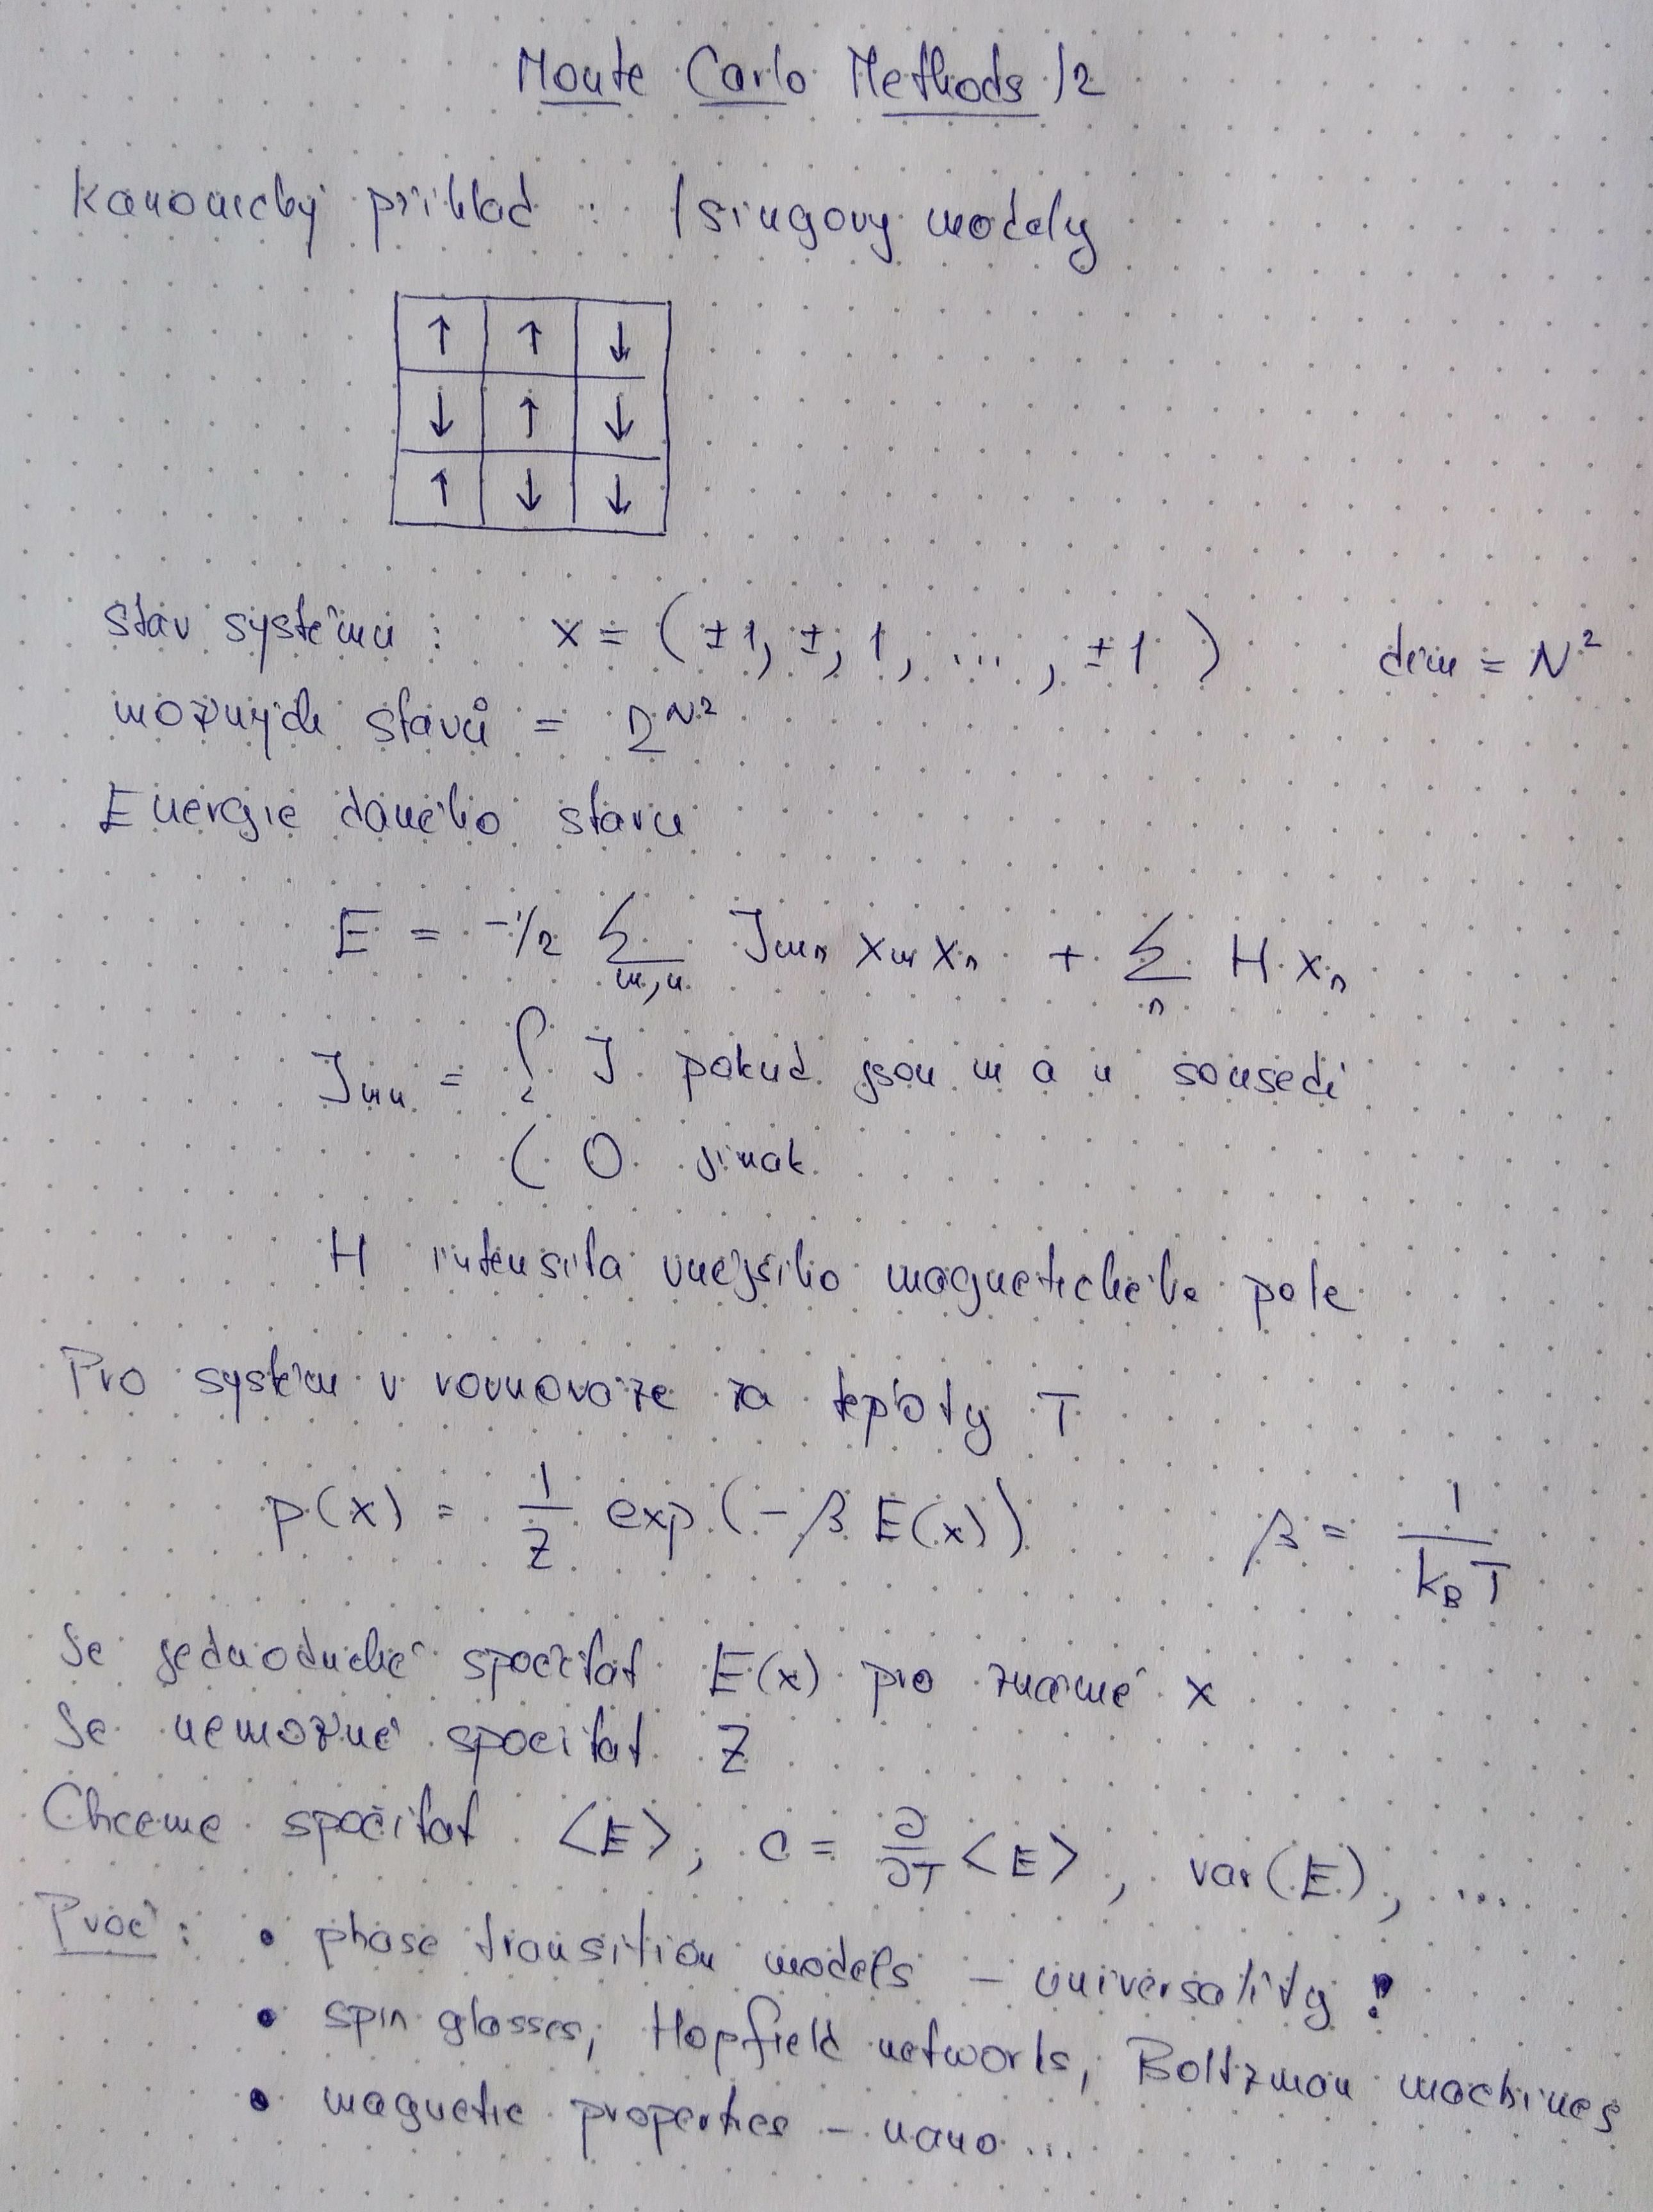 Monte Carlo Methods /2
Kanonický příklad : Isingovy modely
↑ ↑ ↓
↓ ↑ ↓
↑ ↓ ↓
Stav systému : x = (±1, ±, 1, ..., ±1) dim = N²
možných stavů = 2^N²
Energie daného stavu
E = -1/2 ∑_{m,n} J_{mn} x_m x_n + ∑_n H x_n
J_{mn} = { J pokud jsou m a n sousedi
0 jinak
H intensita vnějšího magnetického pole
Pro systém v rovnováze za teploty T
p(x) = 1/Z exp(-β E(x)) β = 1/(k_B T)
Je jednoduché spočítat E(x) pro známé x
Je nemožné spocitat Z
Chceme spočítat <E>, C = ∂/∂T <E>, var(E), ....
Proč : • phase transition models – universality !
• spin glasses, Hopfield networks, Boltzman machines
• magnetic properties – nano ...